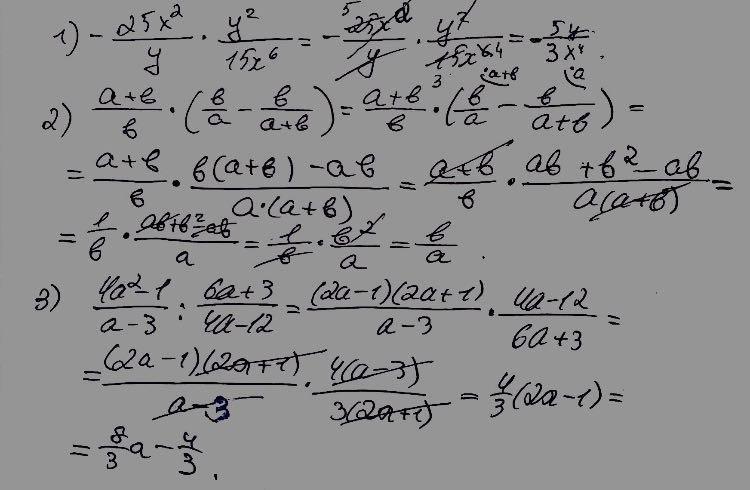 1) - 25x²/y · y²/15x⁶ = - ⁵25x²/y · y²/₃15x⁶ ⁴ = - 5y/3x⁴ .
2) a+b/b · (b/a - b/a+b) = a+b/b · (b/a ·a+b - b/a+b ·a) =
= a+b/b · b(a+b) - ab/a·(a+b) = a+b/b · ab + b² - ab/a(a+b) =
= 1/b · ab+b²-ab/a = 1/b · b²/a = b/a .
3) 4a²-1/a-3 : 6a+3/4a-12 = (2a-1)(2a+1)/a-3 · 4a-12/6a+3 =
= (2a-1)(2a+1)/a-3 · 4(a-3)/3(2a+1) = 4/3 (2a-1) =
= 8/3 a - 4/3 .